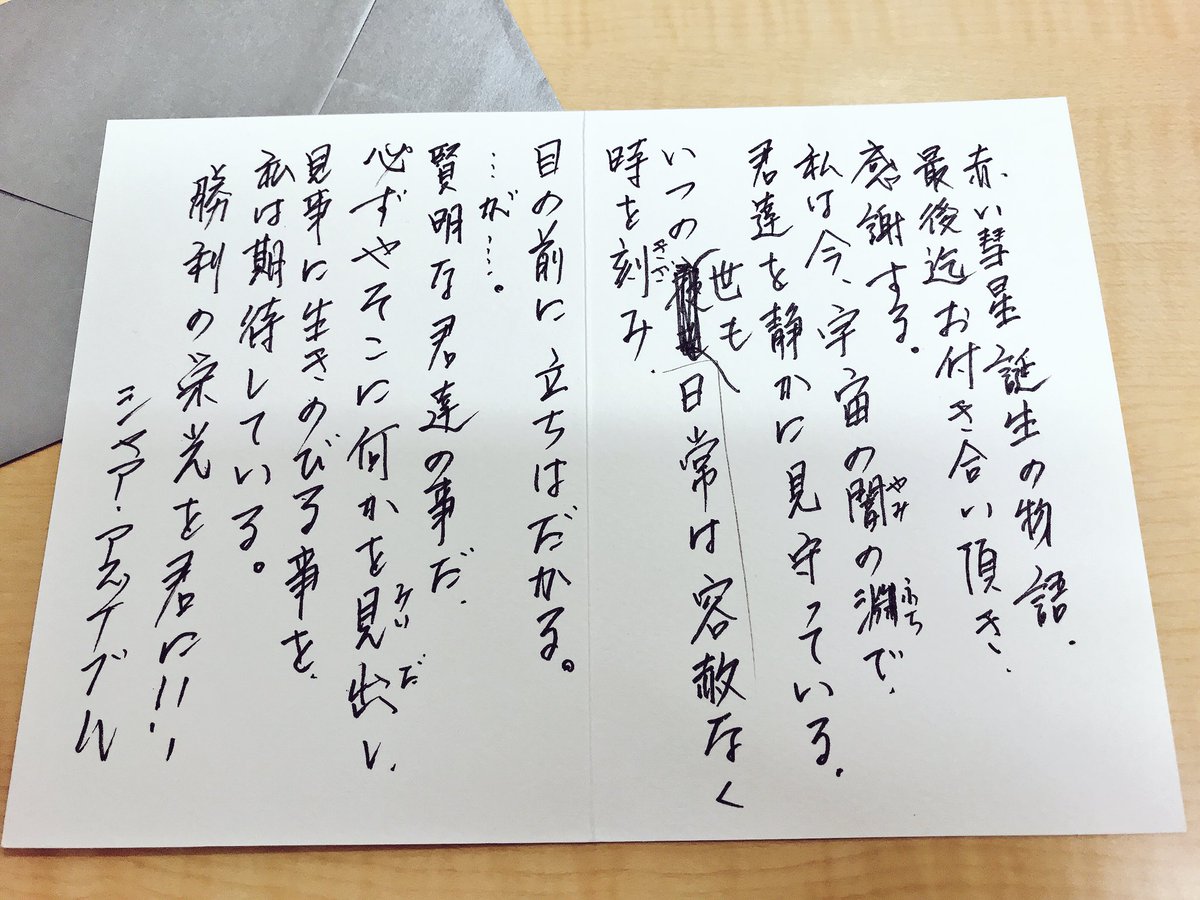 赤い彗星 誕生の物語、
最後迄お付き合い頂き、
感謝する。
私は今、宇宙の闇の淵で、
君達を静かに見守っている。
いつの世も日常は容赦なく
時を刻み、
目の前に立ちはだかる。
…が…。
賢明な君達の事だ、
必ずやそこに何かを見出し、
見事に生きのびる事を、
私は期待している。
勝利の栄光を君に!!
シャア・アズナブル